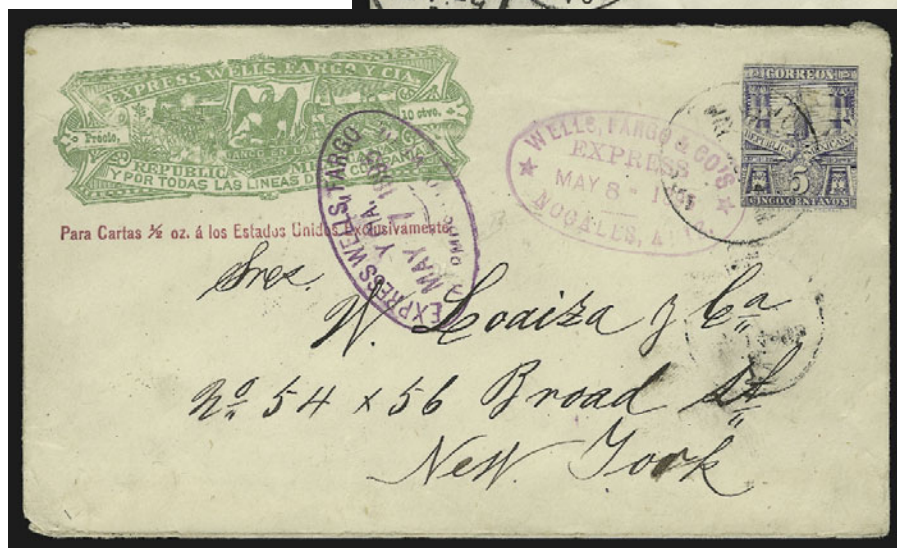 EXPRESS WELLS, FARGO Y CIA.
Précio, 10 ctvo.
REPUBLICA
Y POR TODAS LAS LINEAS DE LA COMPAÑIA
Para Cartas ½ oz. á los Estados Unidos Exclusivamente.
EXPRESS WELLS, FARGO Y CIA.
MAY 7
WELLS, FARGO & CO'S
EXPRESS
MAY 8
NOGALES,
CORREOS
REPUBLICA MEXICANA
5
CINCO CENTAVOS
Sres.
W. Loaiza y Ca
No. 54 x 56 Broad St
New York